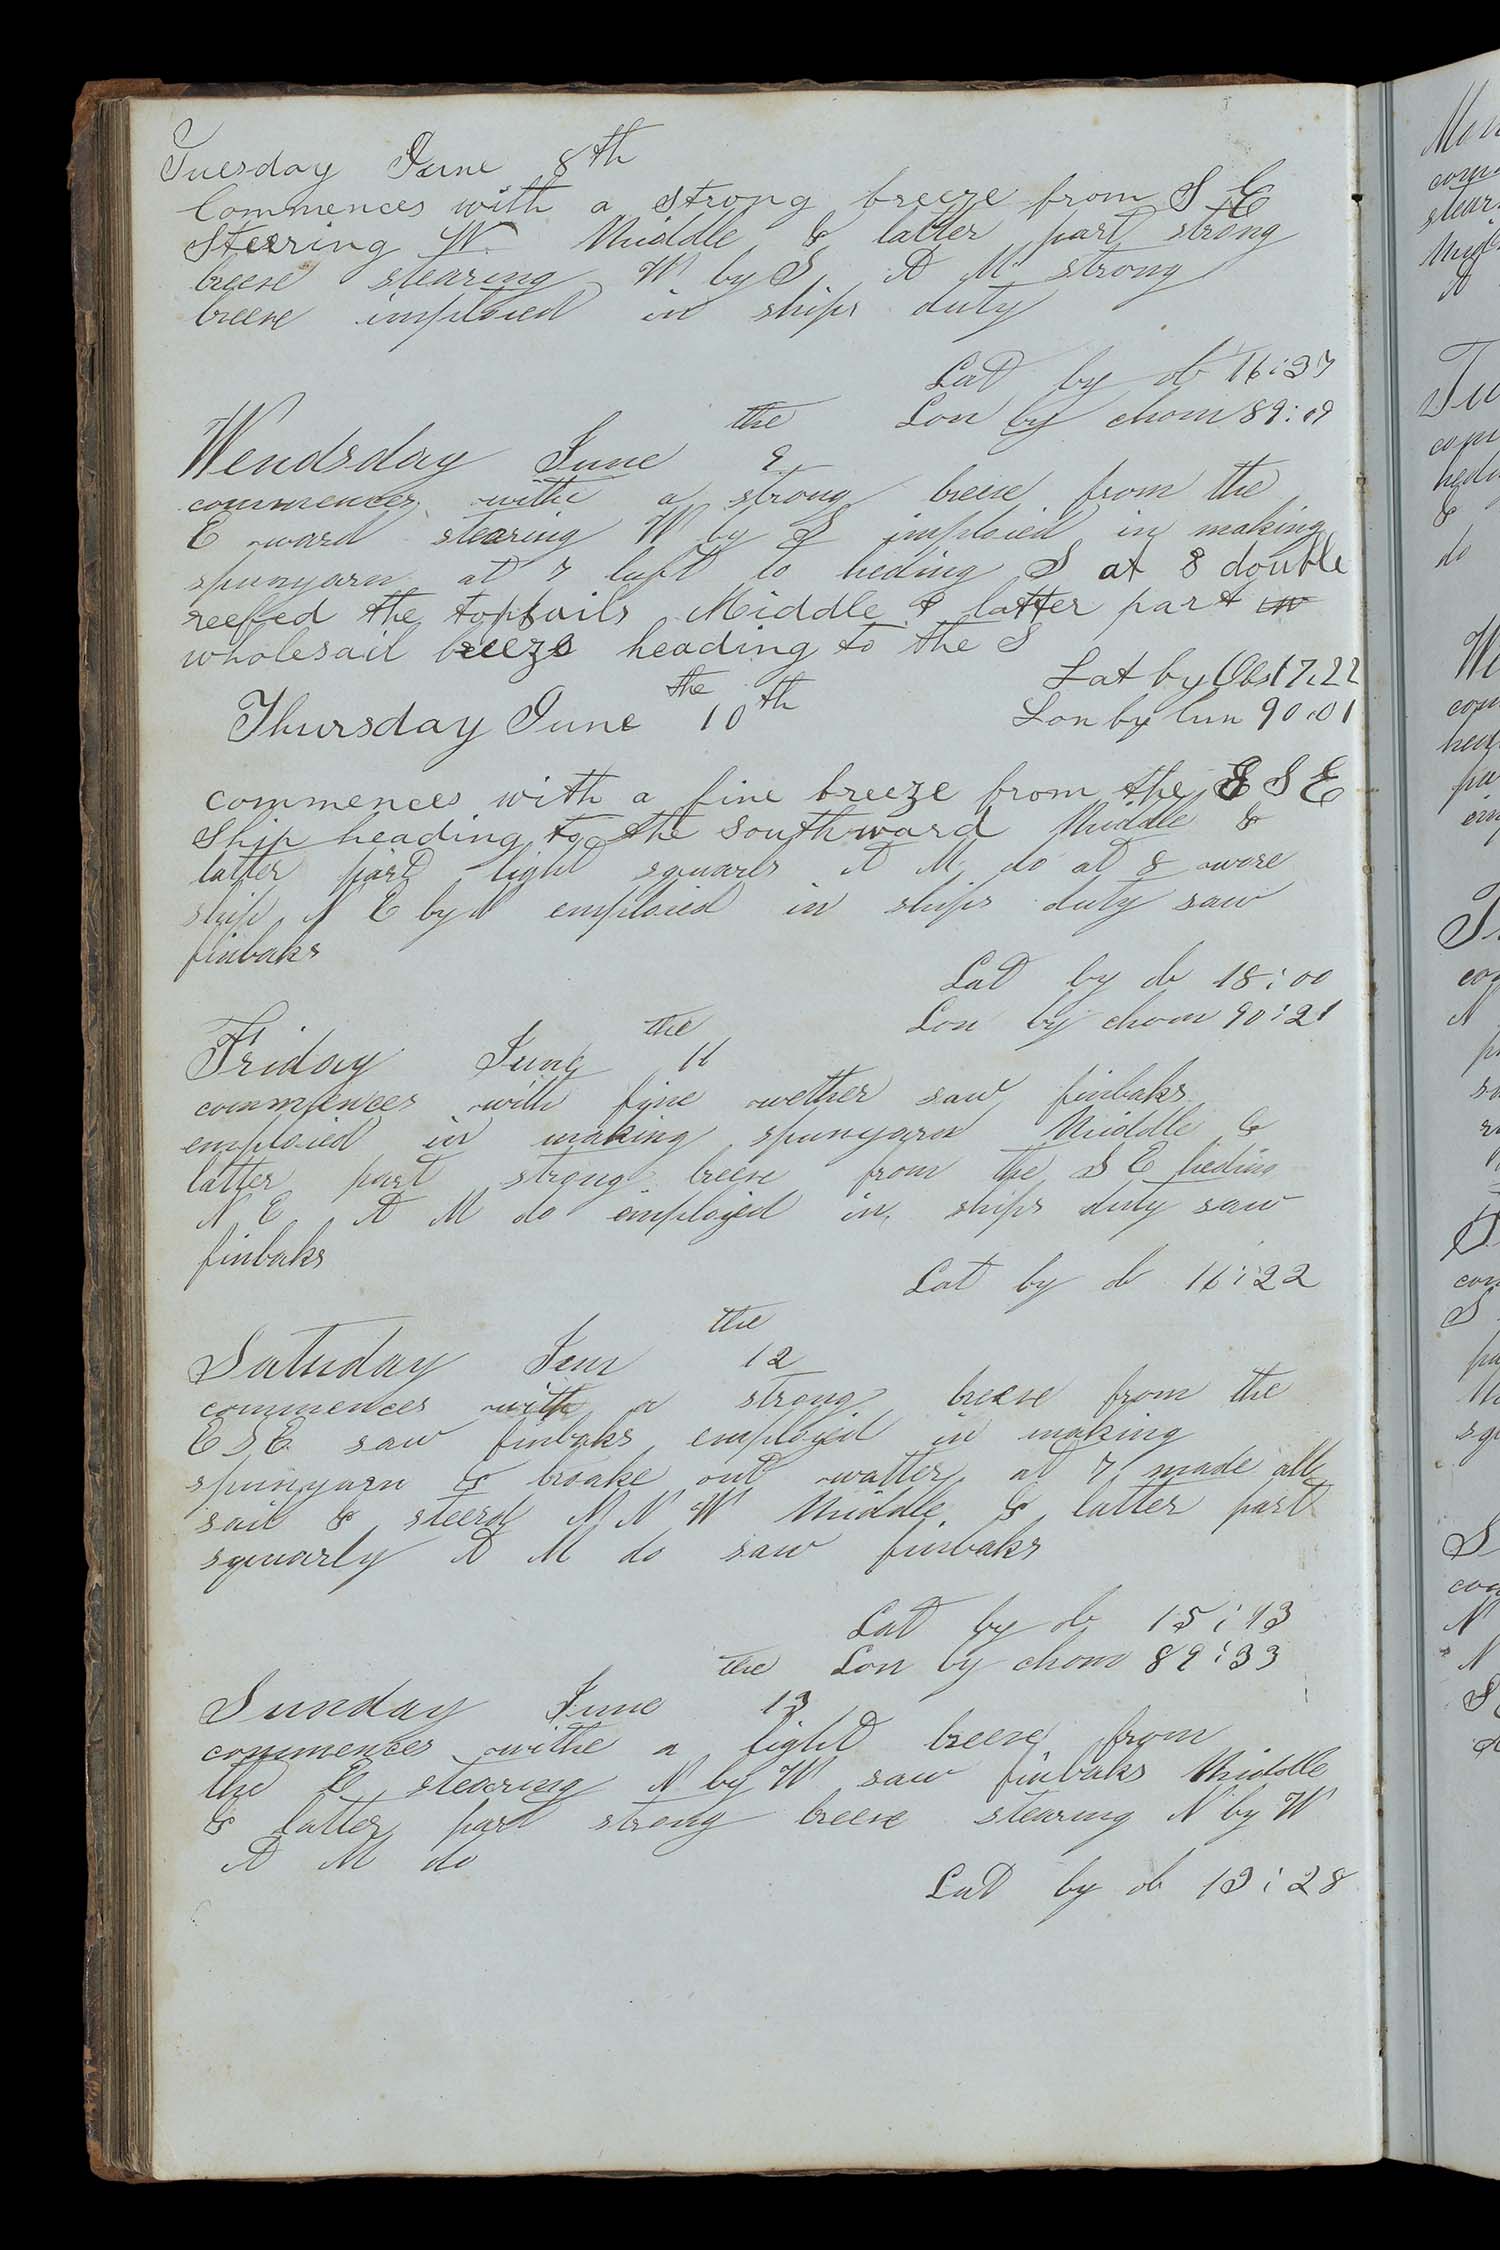 Tuesday June 8th
Commences with a strong breeze from S E
Steering W. Middle & latter part strong
breese stearing W by S A M strong
breese imploied in ships duty
Lat by ob 16:37
Lon by chom 89:09
Wendsday June the 9
commences withe a strong breese from the
E ward stearing W by S imploied in making
spunyarn at 7 luft to heding S at 8 double
reefed the topsails Middle & latter part in
wholesail breeze heading to the S
Lat by Obs 17.22
Thursday June the 10th
Lon by lun 90.01
commences with a fine breeze from the E S E
Ship heading to the southward Middle &
latter part light squares A M do at 8 wore
ship N E by N emploied in ships duty saw
finbaks
Lat by ob 18:00
Lon by chom 90:21
Friday June the 11
commences with fine wether saw finbaks
emploied in making spunyarn Middle &
latter part strong breese from the S E heding
N E A M do employed in ships duty saw
finbaks
Lat by ob 16:22
Satuday Jun the 12
commences with a strong breese from the
E S E saw finbaks employed in making
spunyarn & broake out watter at 7 made all
sail & steerd N N W Middle & latter part
squarly A M do saw finbaks
Lat by ob 15:43
Lon by chom 89:33
Sunday June the 13
commences withe a light breese from
the E stearing N by W saw finbaks Middle
& latter part strong breese stearing N by W
A M do
Lat by ob 13:28